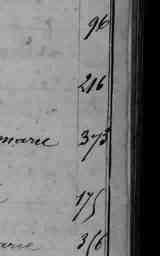 96
216
marie 373
175
marie 356